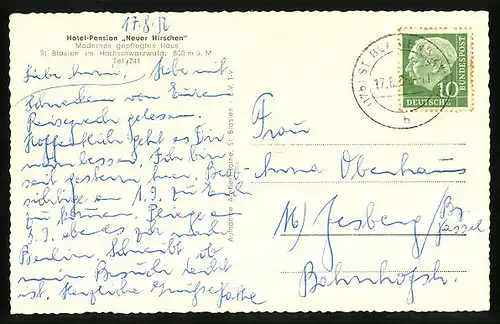 17.8.
Hotel-Pension „Neuer Hirschen"
Modernes gepflegtes Haus
St. Blasien im Hochschwarzwald, 800 m ü. M.
Tel. 241
Liebe Anna. Habe mit
Schrecken von Eurem
gelesen.
Hoffentlich geht es Dir
besser. Ich bin
seit gestern hier. Beab-
sichtige am 1.9. zu Euch
zu kommen. Fliege am
3.9. abends für nach
Berlin. Schreibt ob
mein Besuch recht
ist. Herzliche Grüße Käthe
St. Blasien
ST BLASIEN
17.8.
b
10
DEUTSCHE
BUNDESPOST
Frau
Anna Obenhaus
16) Jesberg / Bz.
Kassel
Bahnhofstr.